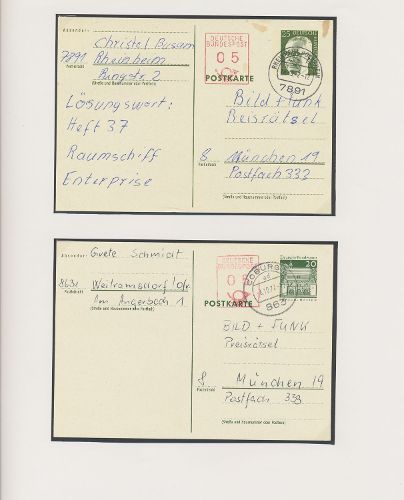 Absender:
Christel Busam
7891
Rheinheim
Postleitzahl
Ringstr. 2
(Straße und Hausnummer oder Postfach)
Lösungswort:
Heft 37
Raumschiff
Enterprise
DEUTSCHE
BUNDESPOST
05
POSTKARTE
7891
Bild + Funk
Preisrätsel
8 München 19
Postleitzahl
Postfach 333
(Straße und Hausnummer oder Postfach)
Absender:
Grete Schmidt
8631
Weitramsdorf
Postleitzahl
Am Angerbach 1
(Straße und Hausnummer oder Postfach)
DEUTSCHE
BUNDESPOST
05
POSTKARTE
COBURG
863
20
BILD + FUNK
Preisrätsel
8 München 19
Postleitzahl
Postfach 333
(Straße und Hausnummer oder Postfach)